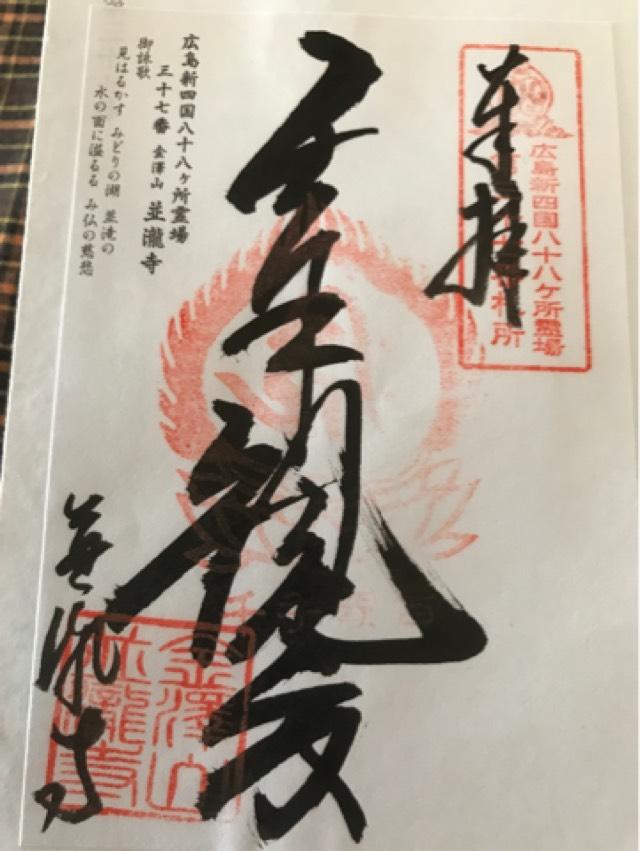 奉拝
広島新四国八十八ヶ所霊場
札所
千手観音
広島新四国八十八ヶ所霊場
三十七番 金澤山 並瀧寺
御詠歌
見はるかす みどりの湖 並滝の
水の面に溢るる み仏の慈愍
並瀧寺
金澤山
並瀧寺